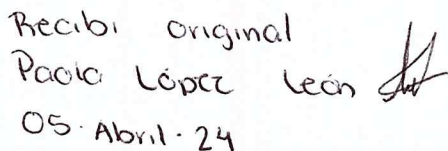 Recibi original
Paola López León
05. Abril. 24